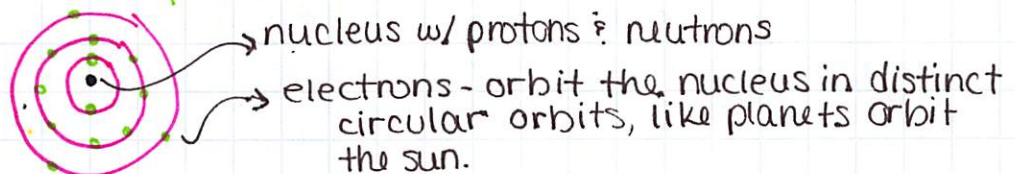 nucleus w/ protons & neutrons
electrons - orbit the nucleus in distinct
circular orbits, like planets orbit
the sun.